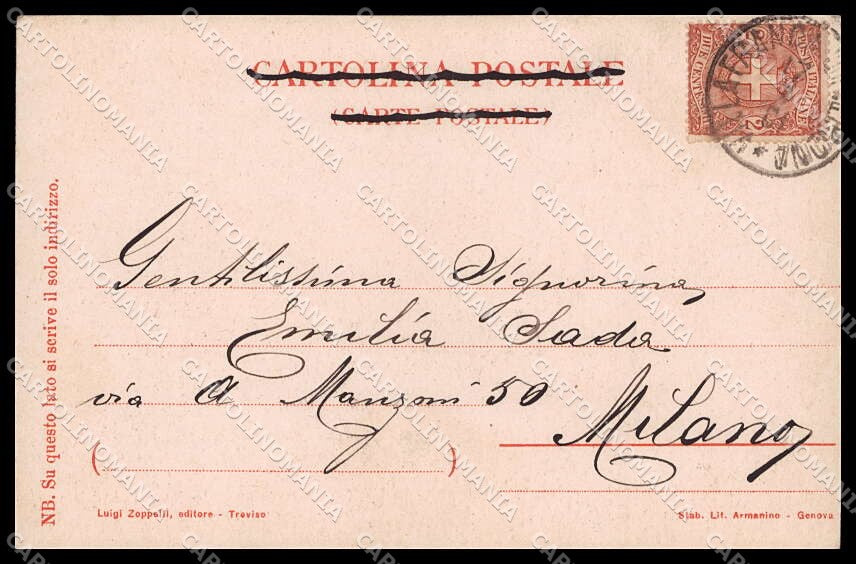 CARTOLINA POSTALE
(CARTE POSTALE)
Gentilissima Signorina
Emilia Sada
via A Manzoni 50
Milano
( )
NB. Su questo lato si scrive il solo indirizzo.
Luigi Zoppelli, editore - Treviso
Stab. Lit. Armanino - Genova
CARTOLINOMANIA